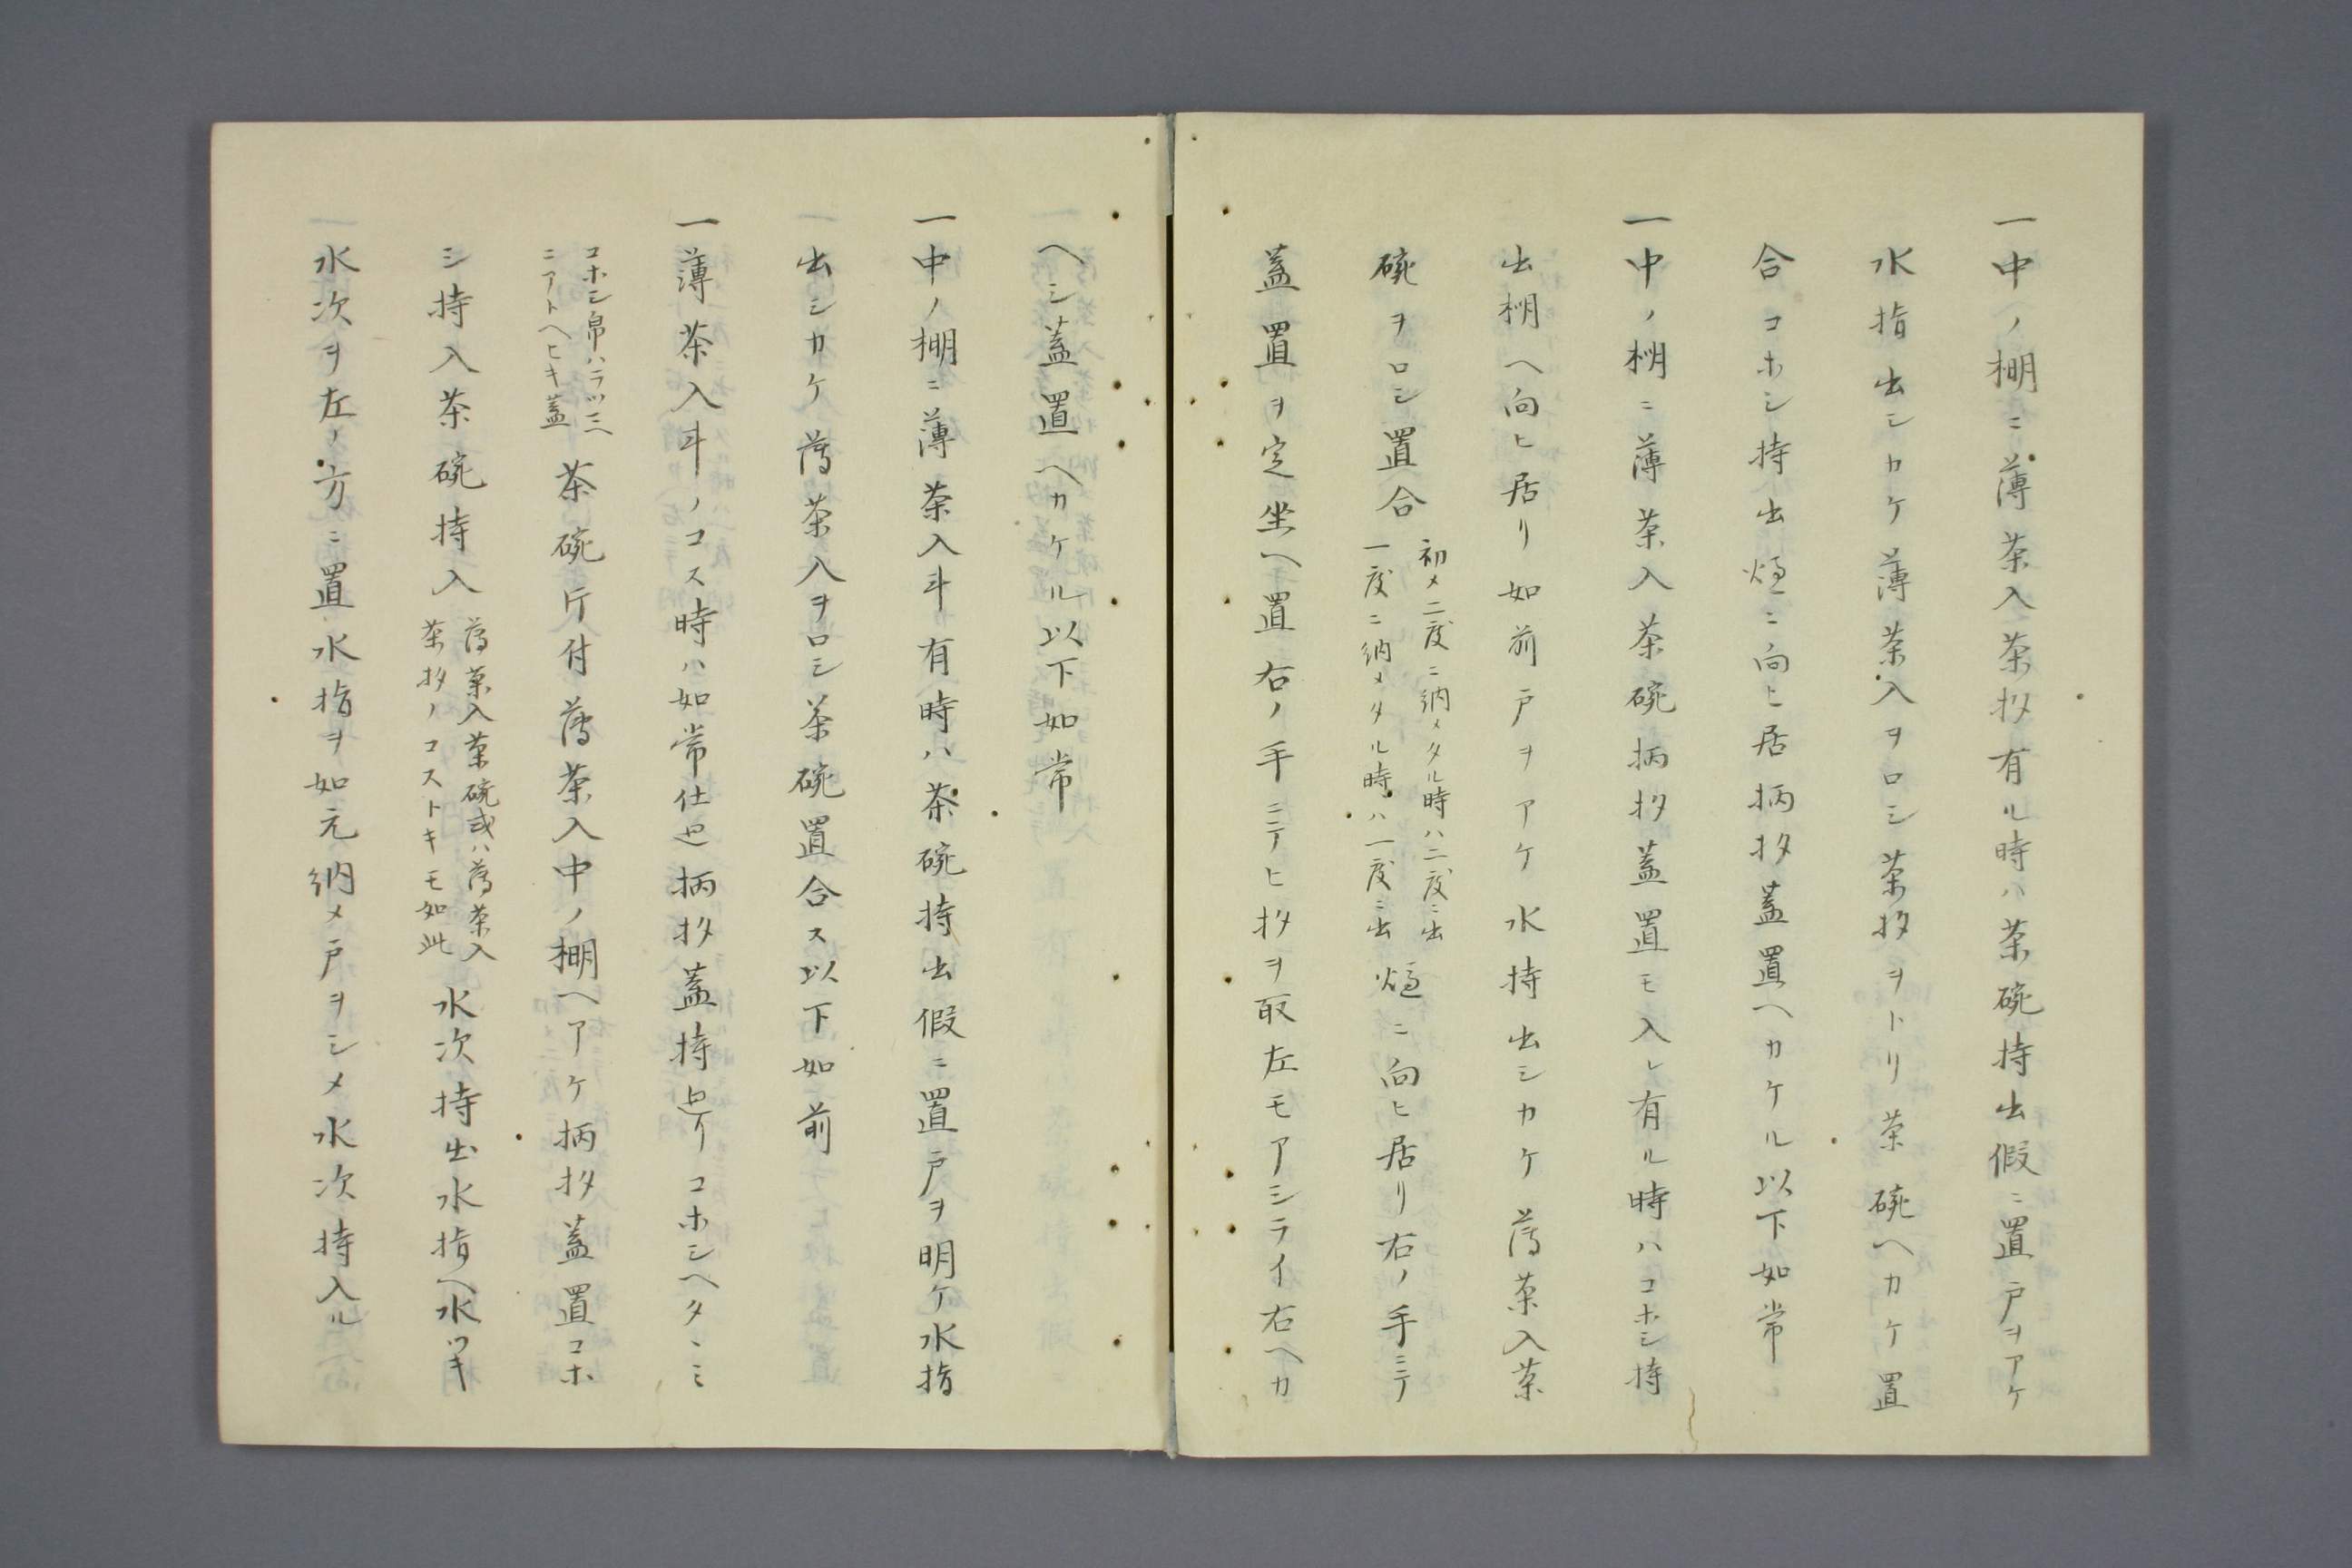 一中ノ棚ニ薄茶入茶抄有ル時ハ茶碗持出假ニ置戸ヲアケ
水指出シカケ薄茶入ヲロシ茶抄ヲトリ茶碗ヘカケ置
合コホシ持出爐ニ向ヒ居柄抄蓋置ヘカケル以下如常
一中ノ棚ニ薄茶入茶碗柄抄蓋置モ入レ有ル時ハコホシ持
出棚ヘ向ヒ居リ如前戸ヲアケ水持出シカケ薄茶入茶
碗ヲロシ置合
初メ二度ニ納メタル時ハ二度ニ出
一度ニ納メタル時ハ一度ニ出
爐ニ向ヒ居リ右ノ手ニテ
蓋置ヲ定坐ヘ置右ノ手ニテヒ抄ヲ取左モアシライ右ヘカ
ヘシ蓋置ヘカケル以下如常
一中ノ棚ニ薄茶入斗有時ハ茶碗持出假ニ置戸ヲ明ケ水指
出シカケ薄茶入ヲロシ茶碗置合ス以下如前
一薄茶入斗ノコス時ハ如常仕廻柄抄蓋持リコホシヘタヽミ
コホシ帛ハラツニ
ニアトヘヒキ蓋
茶碗片付薄茶入中ノ棚ヘアケ柄抄蓋置コホ
シ持入茶碗持入
薄茶入茶碗或ハ薄茶入
茶抄ノコストキモ如此
水次持出水指ヘ水ツキ
水次ヲ左ノ方ニ置水指ヲ如元納メ戸ヲシメ水次持入ル